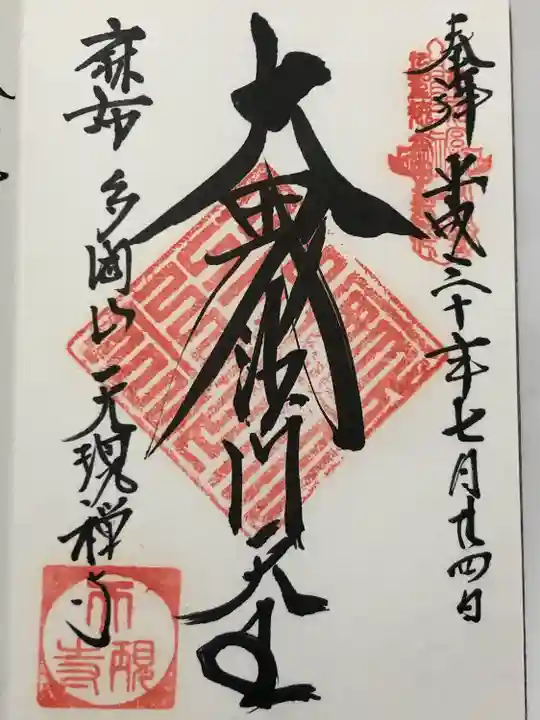 奉拝 平成三十年七月廿四日
大毘沙門天王
麻布 多聞山 天現禅寺